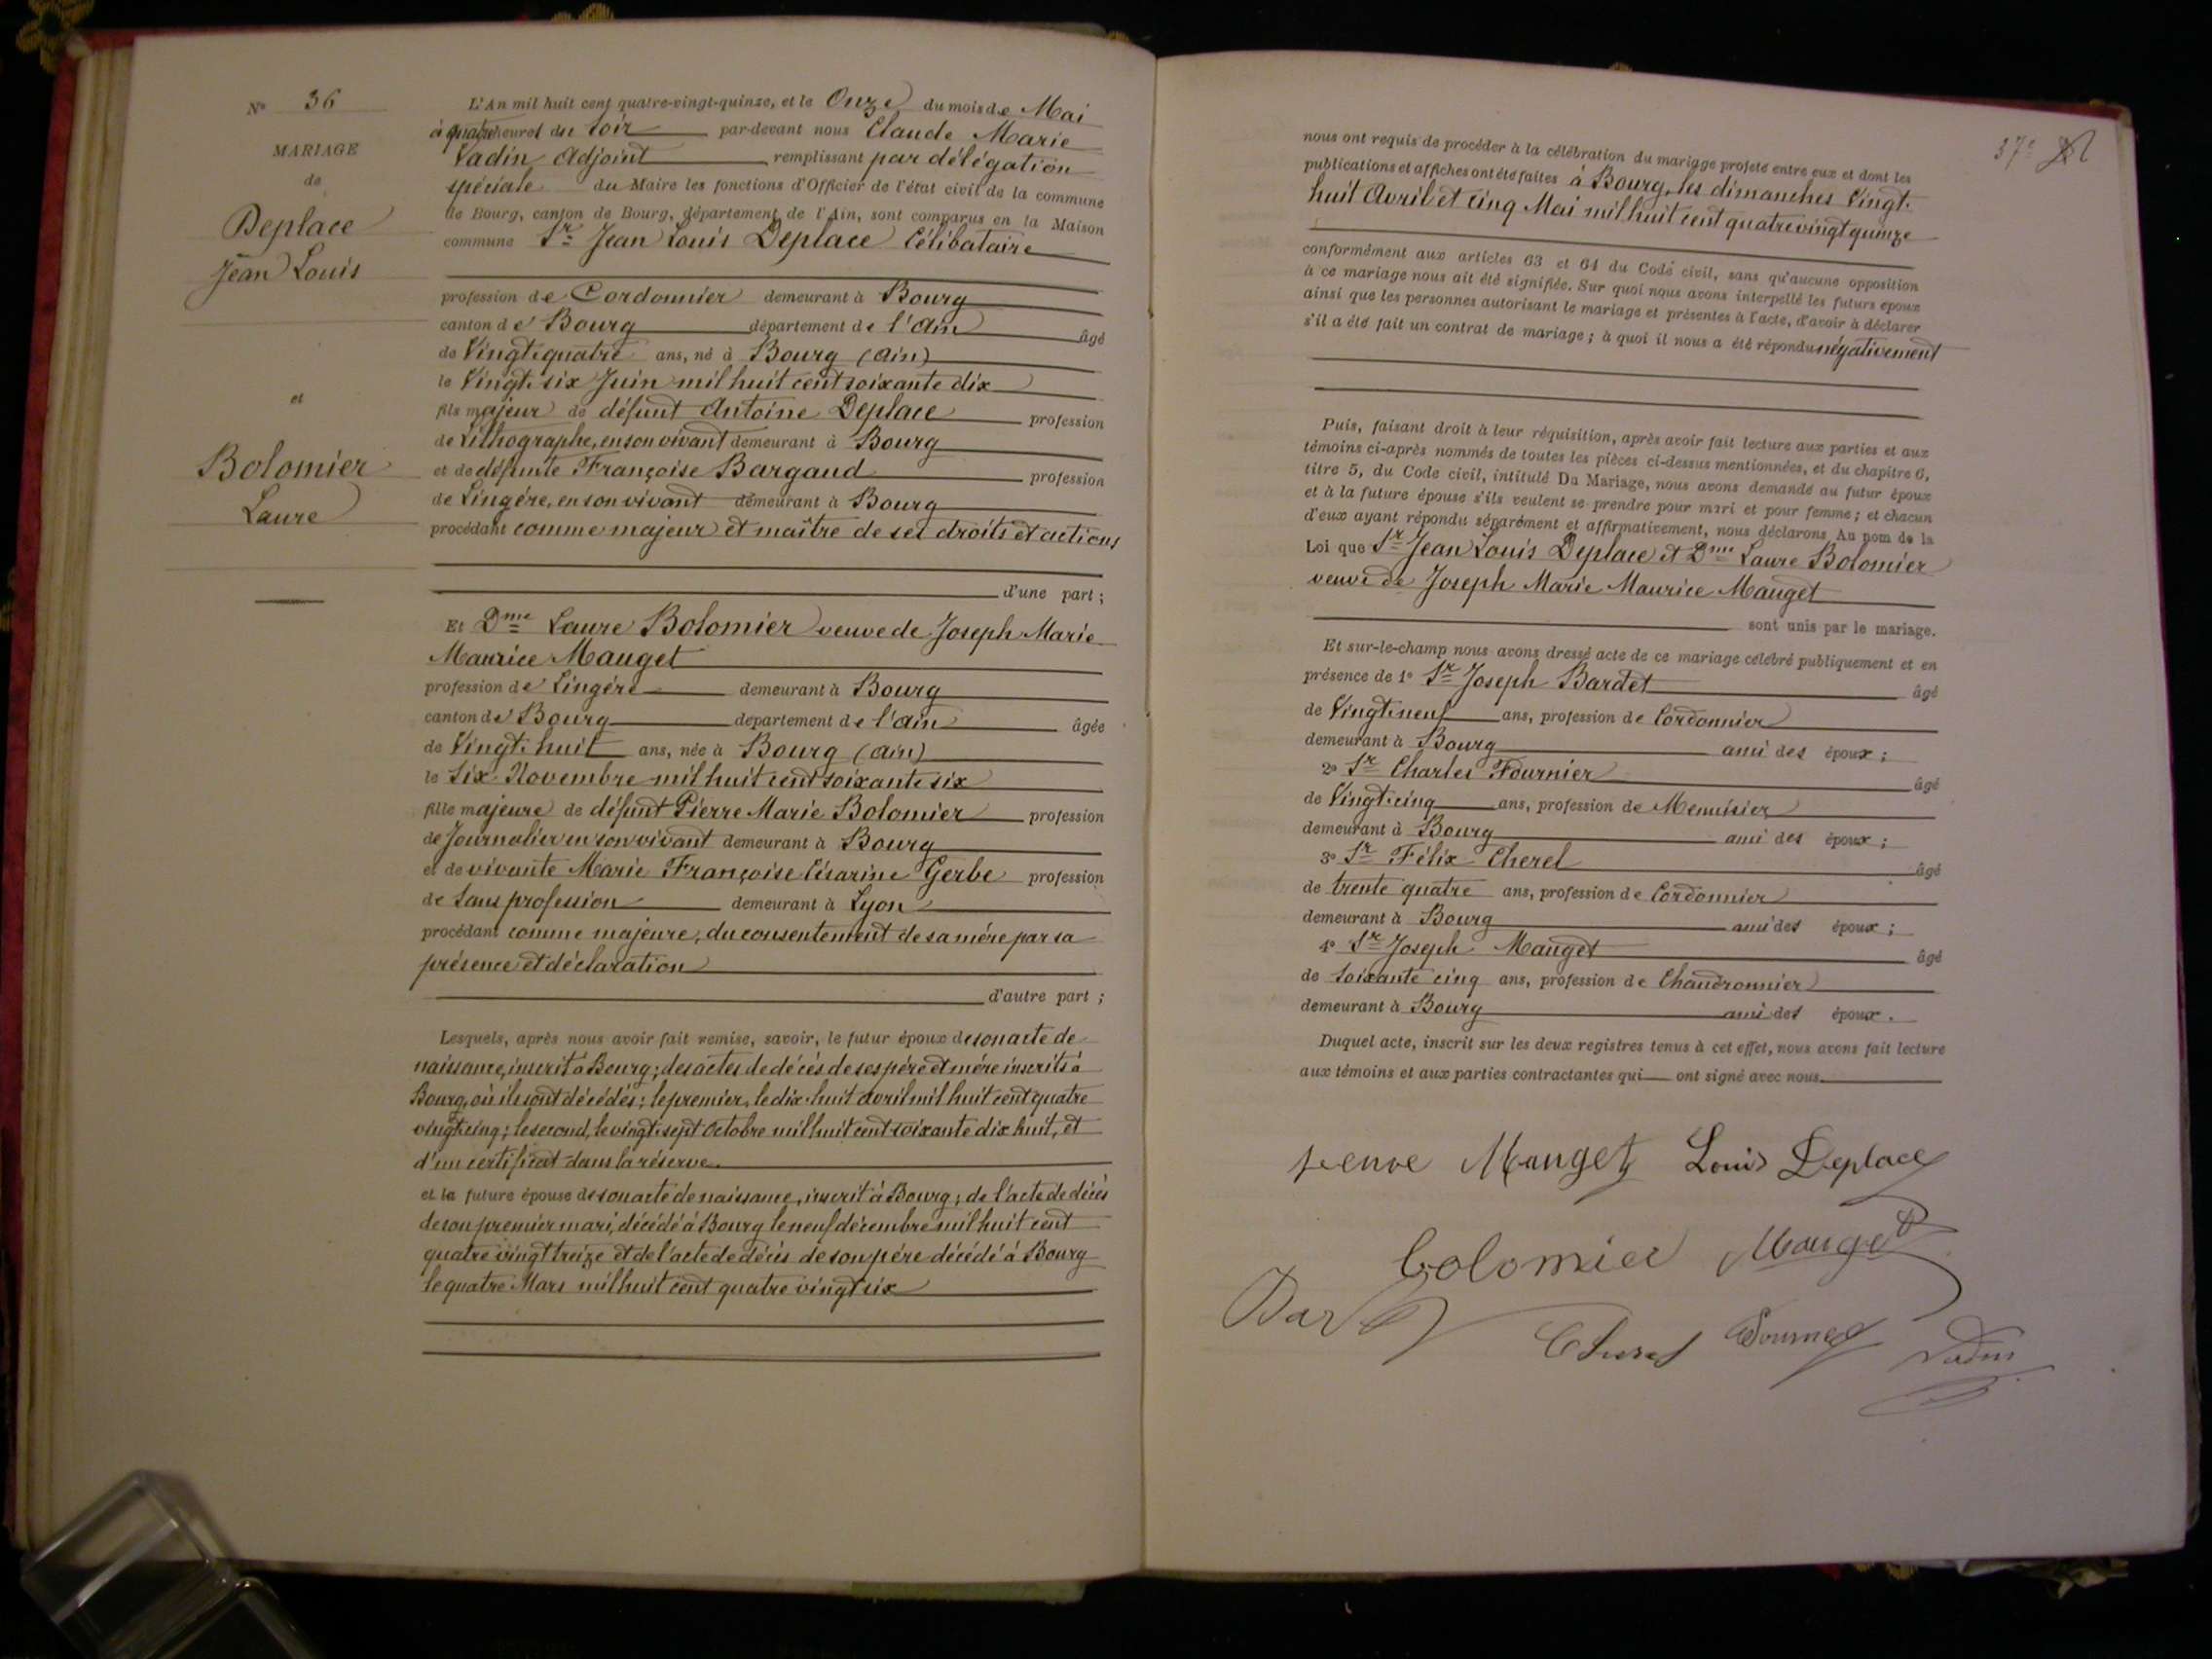 N° 36
MARIAGE
de
Deplace
Jean Louis
et
Bolomier
Laure
L'An mil huit cent quatre-vingt-quinze, et le Onze du mois de Mai
à quatre heures du soir par-devant nous Claude Marie
Vadin Adjoint remplissant par délégation
spéciale du Maire les fonctions d'Officier de l'état civil de la commune
de Bourg, canton de Bourg, département de l'Ain, sont comparus en la Maison
commune Sr Jean Louis Deplace Célibataire
profession de Cordonnier demeurant à Bourg
canton de Bourg département de l'Ain âgé
de Vingt-quatre ans, né à Bourg (Ain)
le Vingt-six Juin mil huit cent soixante dix
fils majeur de défunt Antoine Deplace profession
de Lithographe, en son vivant demeurant à Bourg
et de défunte Françoise Bargaud profession
de Lingére, en son vivant demeurant à Bourg
procédant comme majeur et maître de ses droits et actions
d'une part ;
Et Dme Laure Bolomier veuve de Joseph Marie
Maurice Mauget
profession de Lingére demeurant à Bourg
canton de Bourg département de l'Ain âgée
de Vingt-huit ans, née à Bourg (Ain)
le six Novembre mil huit cent soixante six
fille majeure de défunt Pierre Marie Bolomier profession
de Journalier en son vivant demeurant à Bourg
et de vivante Marie Françoise Césarine Gerbe profession
de sans profession demeurant à Lyon
procédant comme majeure, du consentement de sa mére par sa
présence et déclaration
d'autre part ;
Lesquels, après nous avoir fait remise, savoir, le futur époux de son acte de
naissance, inscrit à Bourg ; des actes de décés de ses pére et mére inscrits à
Bourg, où ils sont décédés ; le premier, le dix-huit avril mil huit cent quatre
vingt-cinq ; le second, le vingt-sept Octobre mil huit cent soixante dix huit, et
d'un certificat dans la réserve.
et la future épouse de son acte de naissance, inscrit à Bourg ; de l'acte de décés
de son premier mari, décédé à Bourg le neuf décembre mil huit cent
quatre vingt treize et de l'acte de décés de son pére décédé à Bourg
le quatre Mars mil huit cent quatre vingt six
37e
nous ont requis de procéder à la célébration du mariage projeté entre eux et dont les
publications et affiches ont été faites à Bourg, les dimanches Vingt-
huit Avril et cinq Mai mil huit cent quatre vingt quinze
conformément aux articles 63 et 64 du Code civil, sans qu'aucune opposition
à ce mariage nous ait été signifiée. Sur quoi nous avons interpellé les futurs époux
ainsi que les personnes autorisant le mariage et présentes à l'acte, d'avoir à déclarer
s'il a été fait un contrat de mariage ; à quoi il nous a été répondu négativement
Puis, faisant droit à leur réquisition, après avoir fait lecture aux parties et aux
témoins ci-après nommés de toutes les pièces ci-dessus mentionnées, et du chapitre 6,
titre 5, du Code civil, intitulé Du Mariage, nous avons demandé au futur époux
et à la future épouse s'ils veulent se prendre pour mari et pour femme ; et chacun
d'eux ayant répondu séparément et affirmativement, nous déclarons Au nom de la
Loi que Sr Jean Louis Deplace et Dme Laure Bolomier
veuve de Joseph Marie Maurice Mauget
sont unis par le mariage.
Et sur-le-champ nous avons dressé acte de ce mariage célébré publiquement et en
présence de 1° Sr Joseph Bardet âgé
de Vingt-neuf ans, profession de Cordonnier
demeurant à Bourg ami des époux ;
2° Sr Charles Fournier âgé
de Vingt-cinq ans, profession de Menuisier
demeurant à Bourg ami des époux ;
3° Sr Félix Cherel âgé
de trente quatre ans, profession de Cordonnier
demeurant à Bourg ami des époux ;
4° Sr Joseph Mauget âgé
de soixante cinq ans, profession de Chaudronnier
demeurant à Bourg ami des époux.
Duquel acte, inscrit sur les deux registres tenus à cet effet, nous avons fait lecture
aux témoins et aux parties contractantes qui ont signé avec nous.
veuve Mauget Louis Deplace
bolomier Mauget
Cherel Vadin